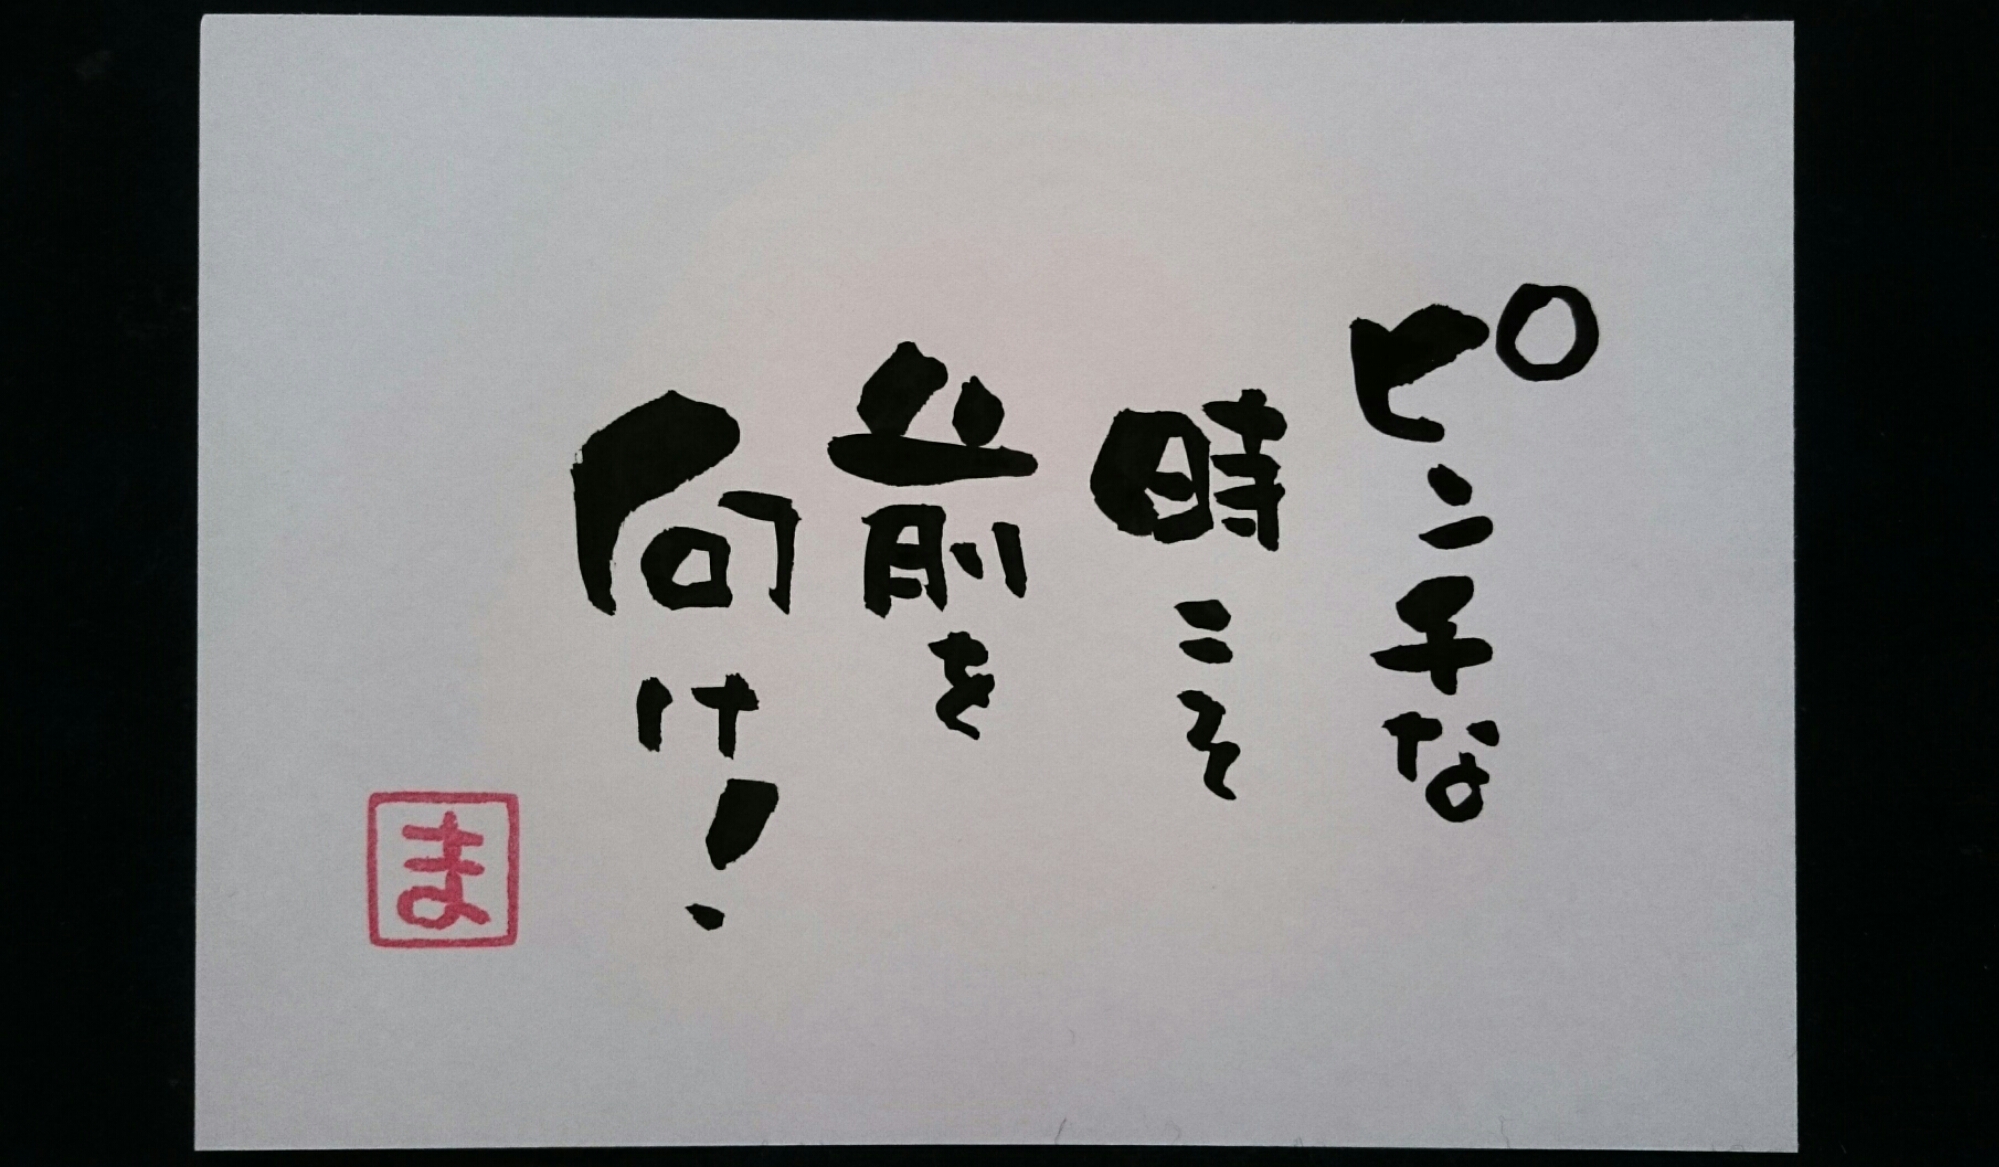 ピンチな
時こそ
前を
向け!
ま